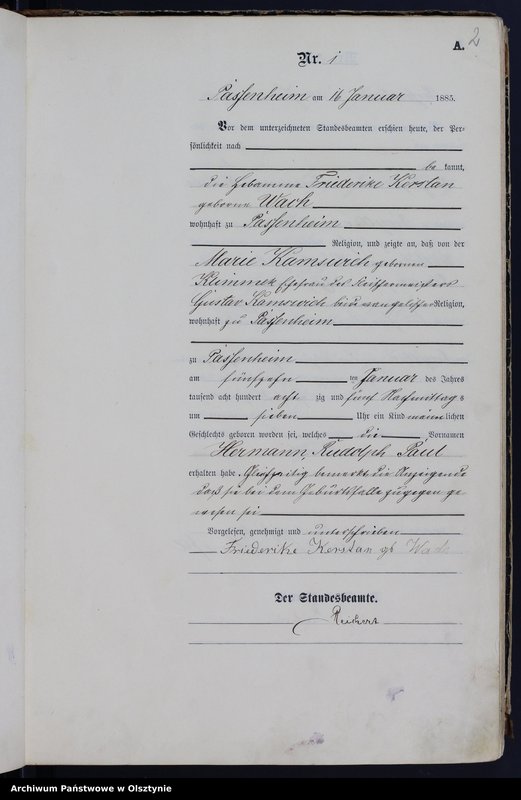 A. 2
Nr. 1
Passenheim am 16 Januar 1885.
Vor dem unterzeichneten Standesbeamten erschien heute, der Per-
sönlichkeit nach
be kannt,
die Hebamme Friederike Kerstan
geborne Wach
wohnhaft zu Passenheim
Religion, und zeigte an, daß von der
Marie Kamswich geborenen
Klimmek Ehefrau des
Gustav Kamswich beide evangelischer Religion,
wohnhaft zu Passenheim
zu Passenheim
am fünfzehn ten Januar des Jahres
tausend acht hundert acht zig und fünf Nachmittag s
um sieben Uhr ein Kind männ lichen
Geschlechts geboren worden sei, welches die Vornamen
Hermann, Rudolph Paul
erhalten habe. Gleichzeitig bemerkt die Anzeigende
daß sie bei dem Geburtsfalle zugegen ge-
wesen sei
Vorgelesen, genehmigt und unterschrieben
Friederike Kerstan gb Wach
Der Standesbeamte.
Archiwum Państwowe w Olsztynie